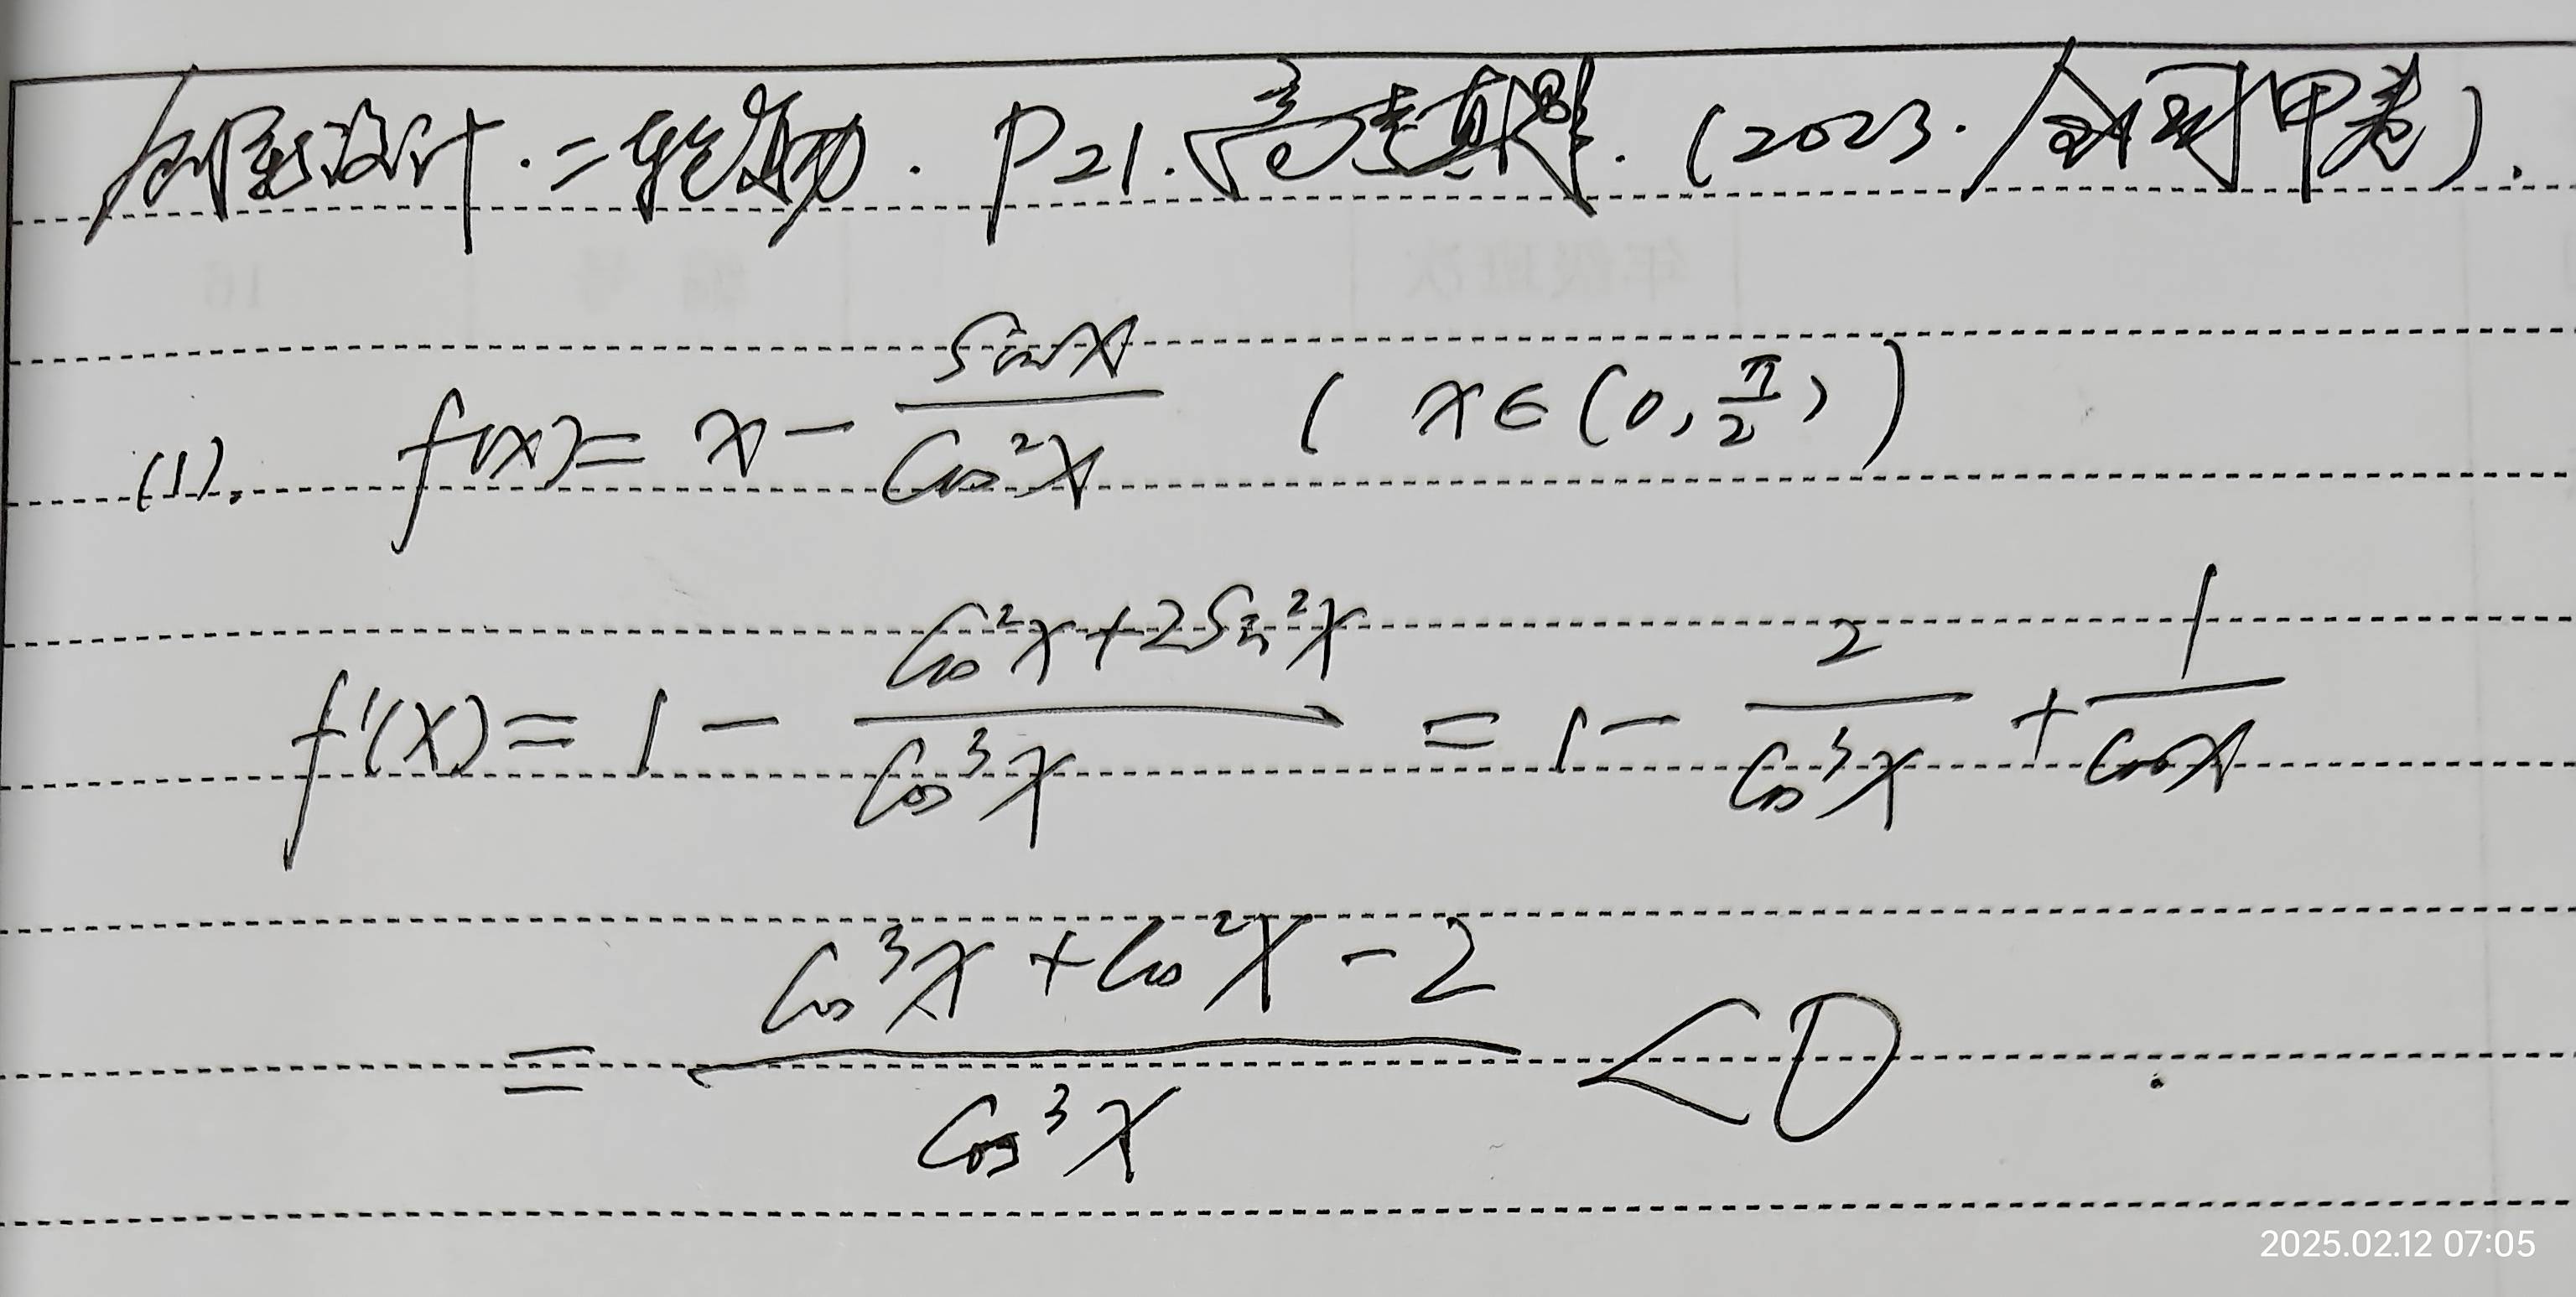 创新设计·二轮复习. P21.高考真题.(2023·全国甲卷).
(1). f(x)= x - \frac{sinx}{cos²x} ( x∈(0, \frac{π}{2}) )
f'(x)= 1 - \frac{cos²x+2sin²x}{cos³x} = 1 - \frac{2}{cos³x} + \frac{1}{cosx}
= \frac{cos³x+cos²x-2}{cos³x} <0
2025.02.12 07:05